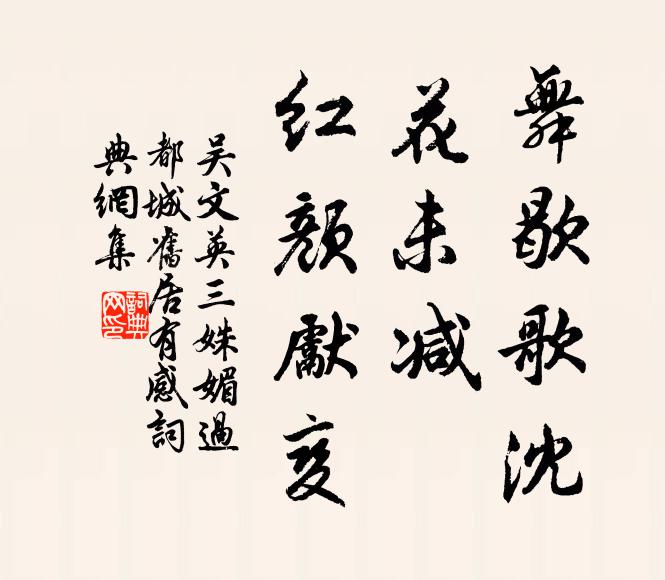 舞歇歌沈
花未减
红顏獻变
吴文英三姝媚過
都城舊居有感詞
典網集
詞典
网印